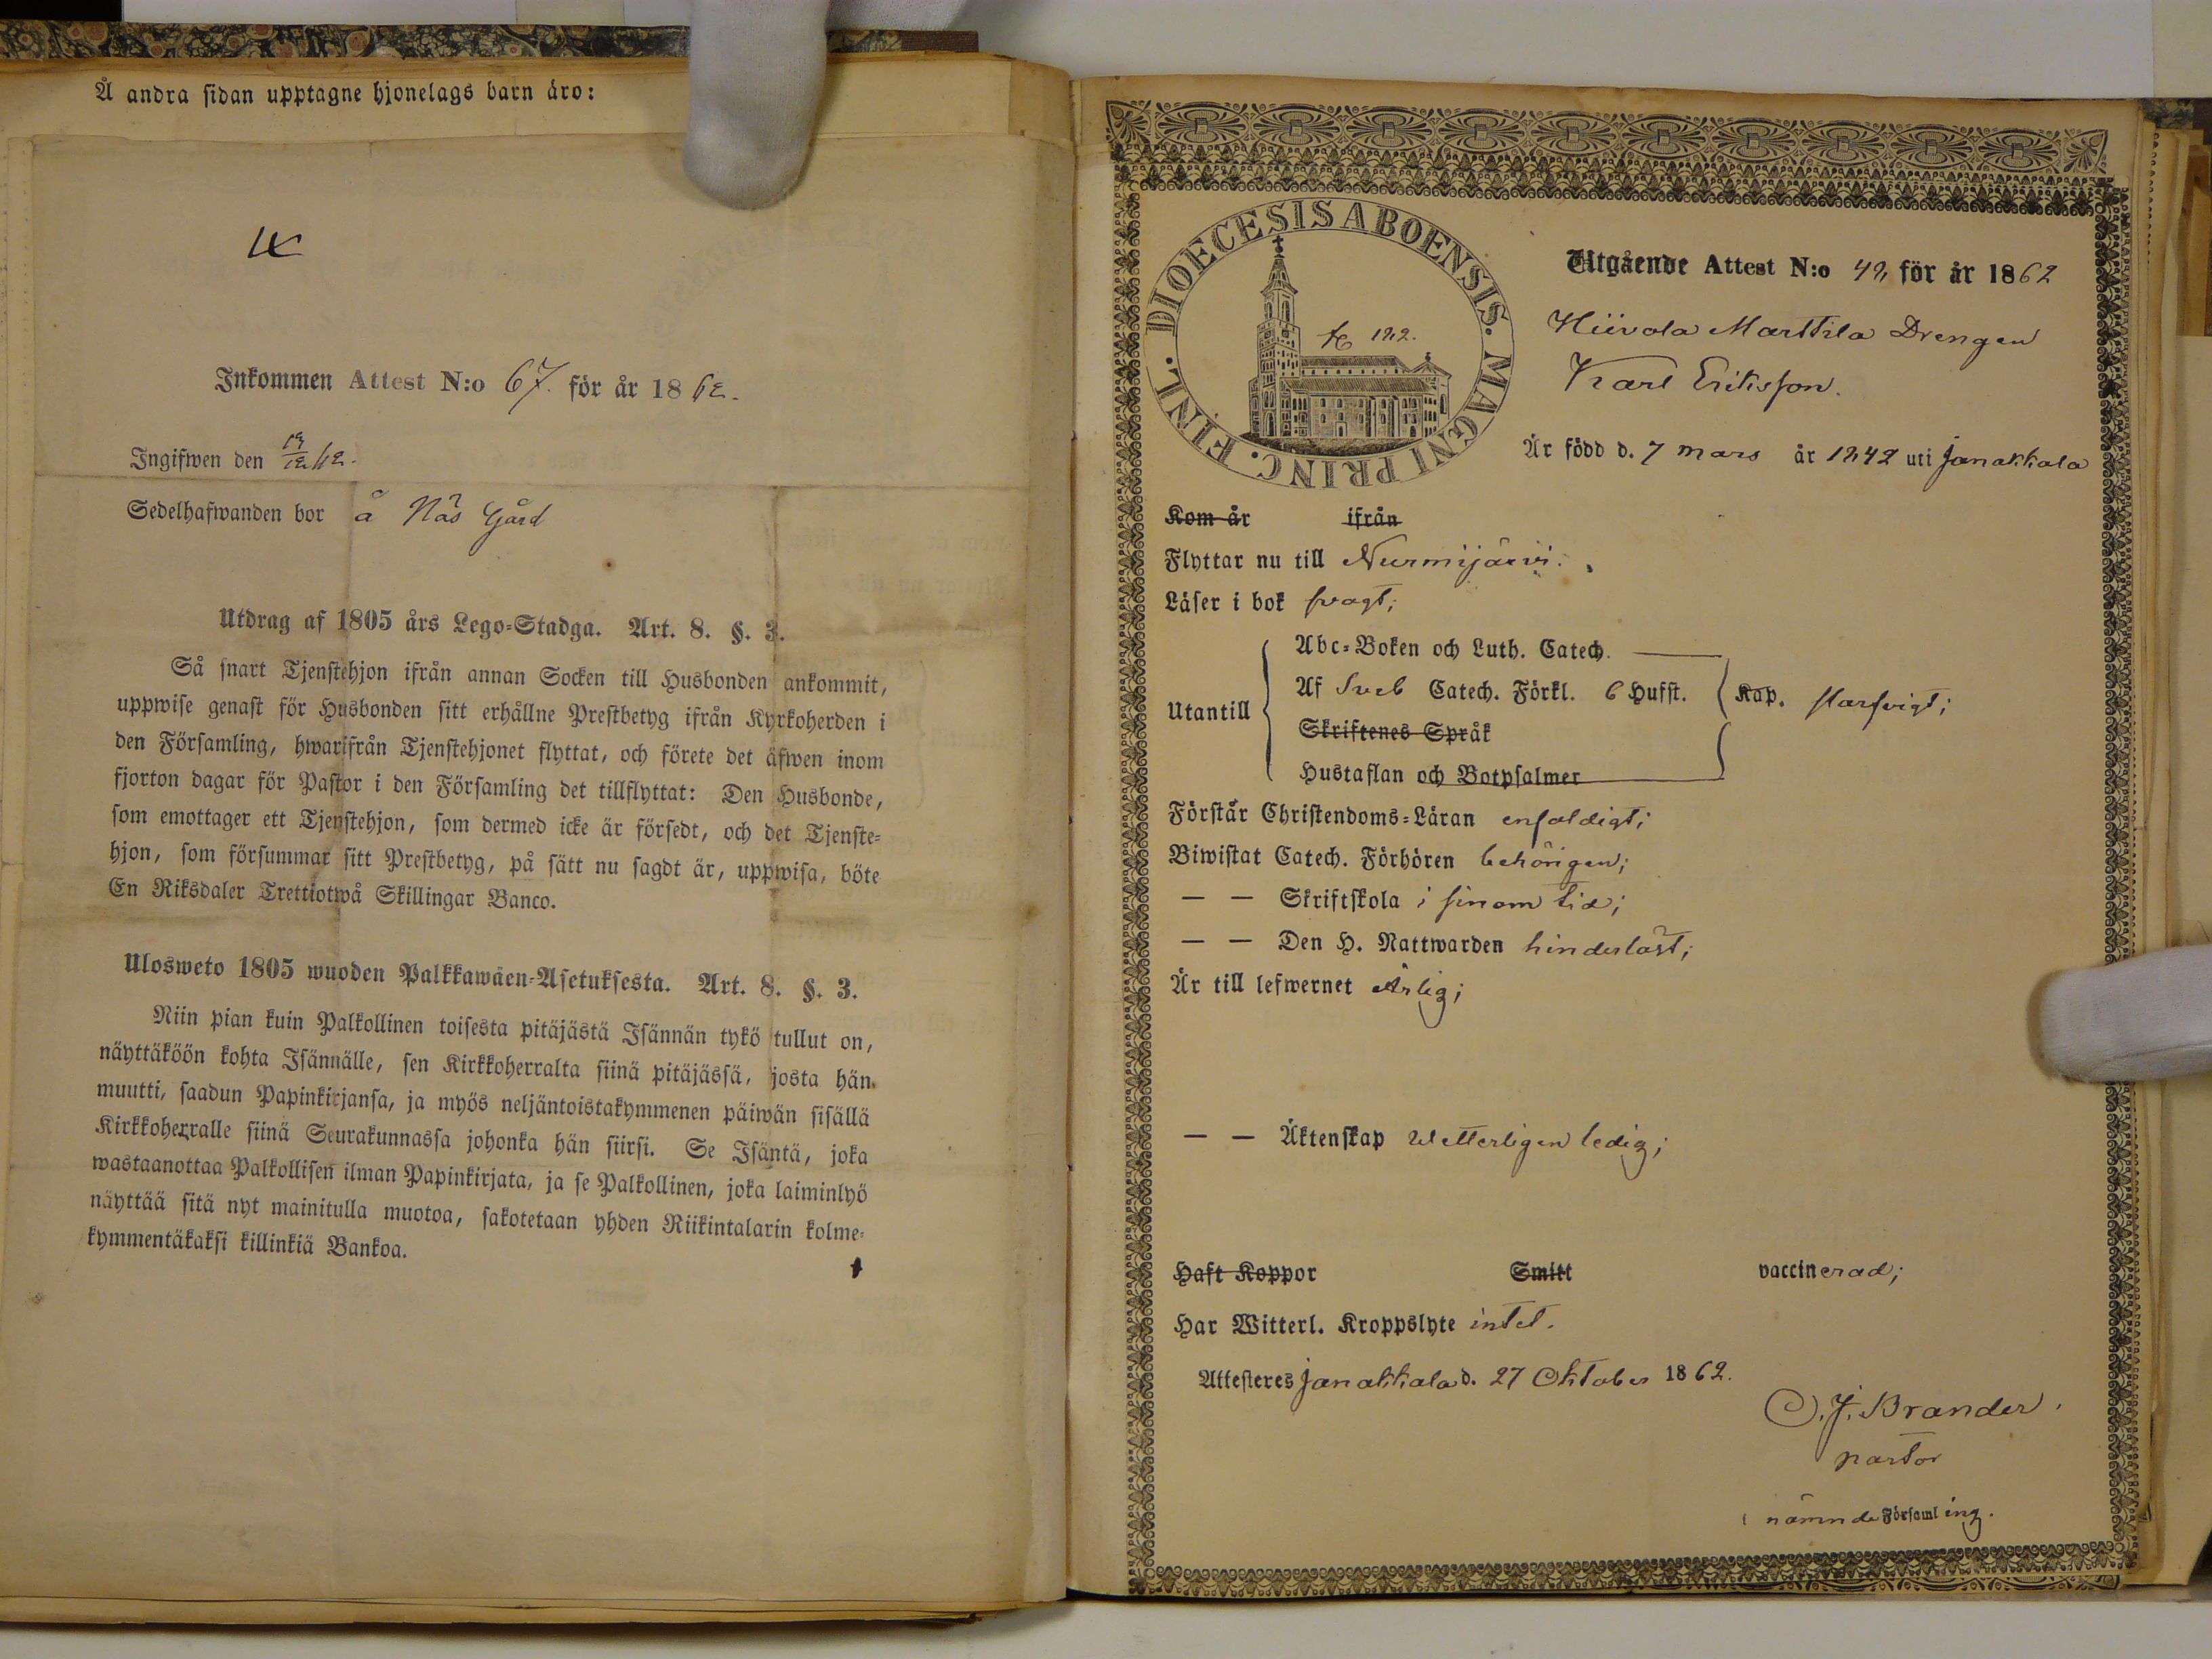 Å andra sidan upptagne hjonelags barn äro:
Inkommen Attest N:o 67. för år 1862.
Ingifwen den 19/12 62.
Sedelhafwanden bor å Näs Gård
Utdrag af 1805 års Lego-Stadga. Art. 8. §. 3.
Så snart Tjenstehjon ifrån annan Socken till Husbonden ankommit,
uppwise genast för Husbonden sitt erhållne Prestbetyg ifrån Kyrkoherden i
den Församling, hwarifrån Tjenstehjonet flyttat, och förete det äfwen inom
fjorton dagar för Pastor i den Församling det tillflyttat: Den Husbonde,
som emottager ett Tjenstehjon, som dermed icke är försedt, och det Tjenste-
hjon, som försummar sitt Prestbetyg, på sätt nu sagdt är, uppwisa, böte
En Riksdaler Trettiotwå Skillingar Banco.
Ulosweto 1805 wuoden Palkkawäen-Asetuksesta. Art. 8. §. 3.
Niin pian kuin Palkollinen toisesta pitäjästä Isännän tykö tullut on,
näyttäköön kohta Isännälle, sen Kirkkoherralta siinä pitäjässä, josta hän
muutti, saadun Papinkirjansa, ja myös neljäntoistakymmenen päiwän sisällä
Kirkkoherralle siinä Seurakunnassa johonka hän siirsi. Se Isäntä, joka
wastaanottaa Palkollisen ilman Papinkirjata, ja se Palkollinen, joka laiminlyö
näyttää sitä nyt mainitulla muotoa, sakotetaan yhden Riikintalarin kolme-
kymmentäkaksi killinkiä Bankoa.
DIOECESIS ABOENSIS. MAGNI PRINC. FINL.
Utgående Attest N:o för år 1862
Hiivola Marttila Drengen
Karl Eriksson.
Är född d. 7 Mars år 1842 uti Janakkala
Kom år ifrån
Flyttar nu till Nurmijärvi.
Läser i bok svagt;
Utantill
Abc-Boken och Luth. Catech.
Af Sveb Catech. Förkl. 6 Hufst. Kap. slarfvigt;
Skriftenes Språk
Hustaflan och Botpsalmer
Förstår Christendoms-Läran enfaldigt;
Biwistat Catech. Förhören behörigen;
— — Skriftskola i sinom tid;
— — Den H. Nattwarden hinderlöst;
Är till lefwernet Ärlig;
— — Äktenskap Wetterligen ledig;
Haft Koppor Smitt vaccinerad;
Har Witterl. Kroppslyte intet.
Attesteres Janakkala d. 27 Oktober 1862.
C. J. Brander.
pastor
i nämnde Församling.